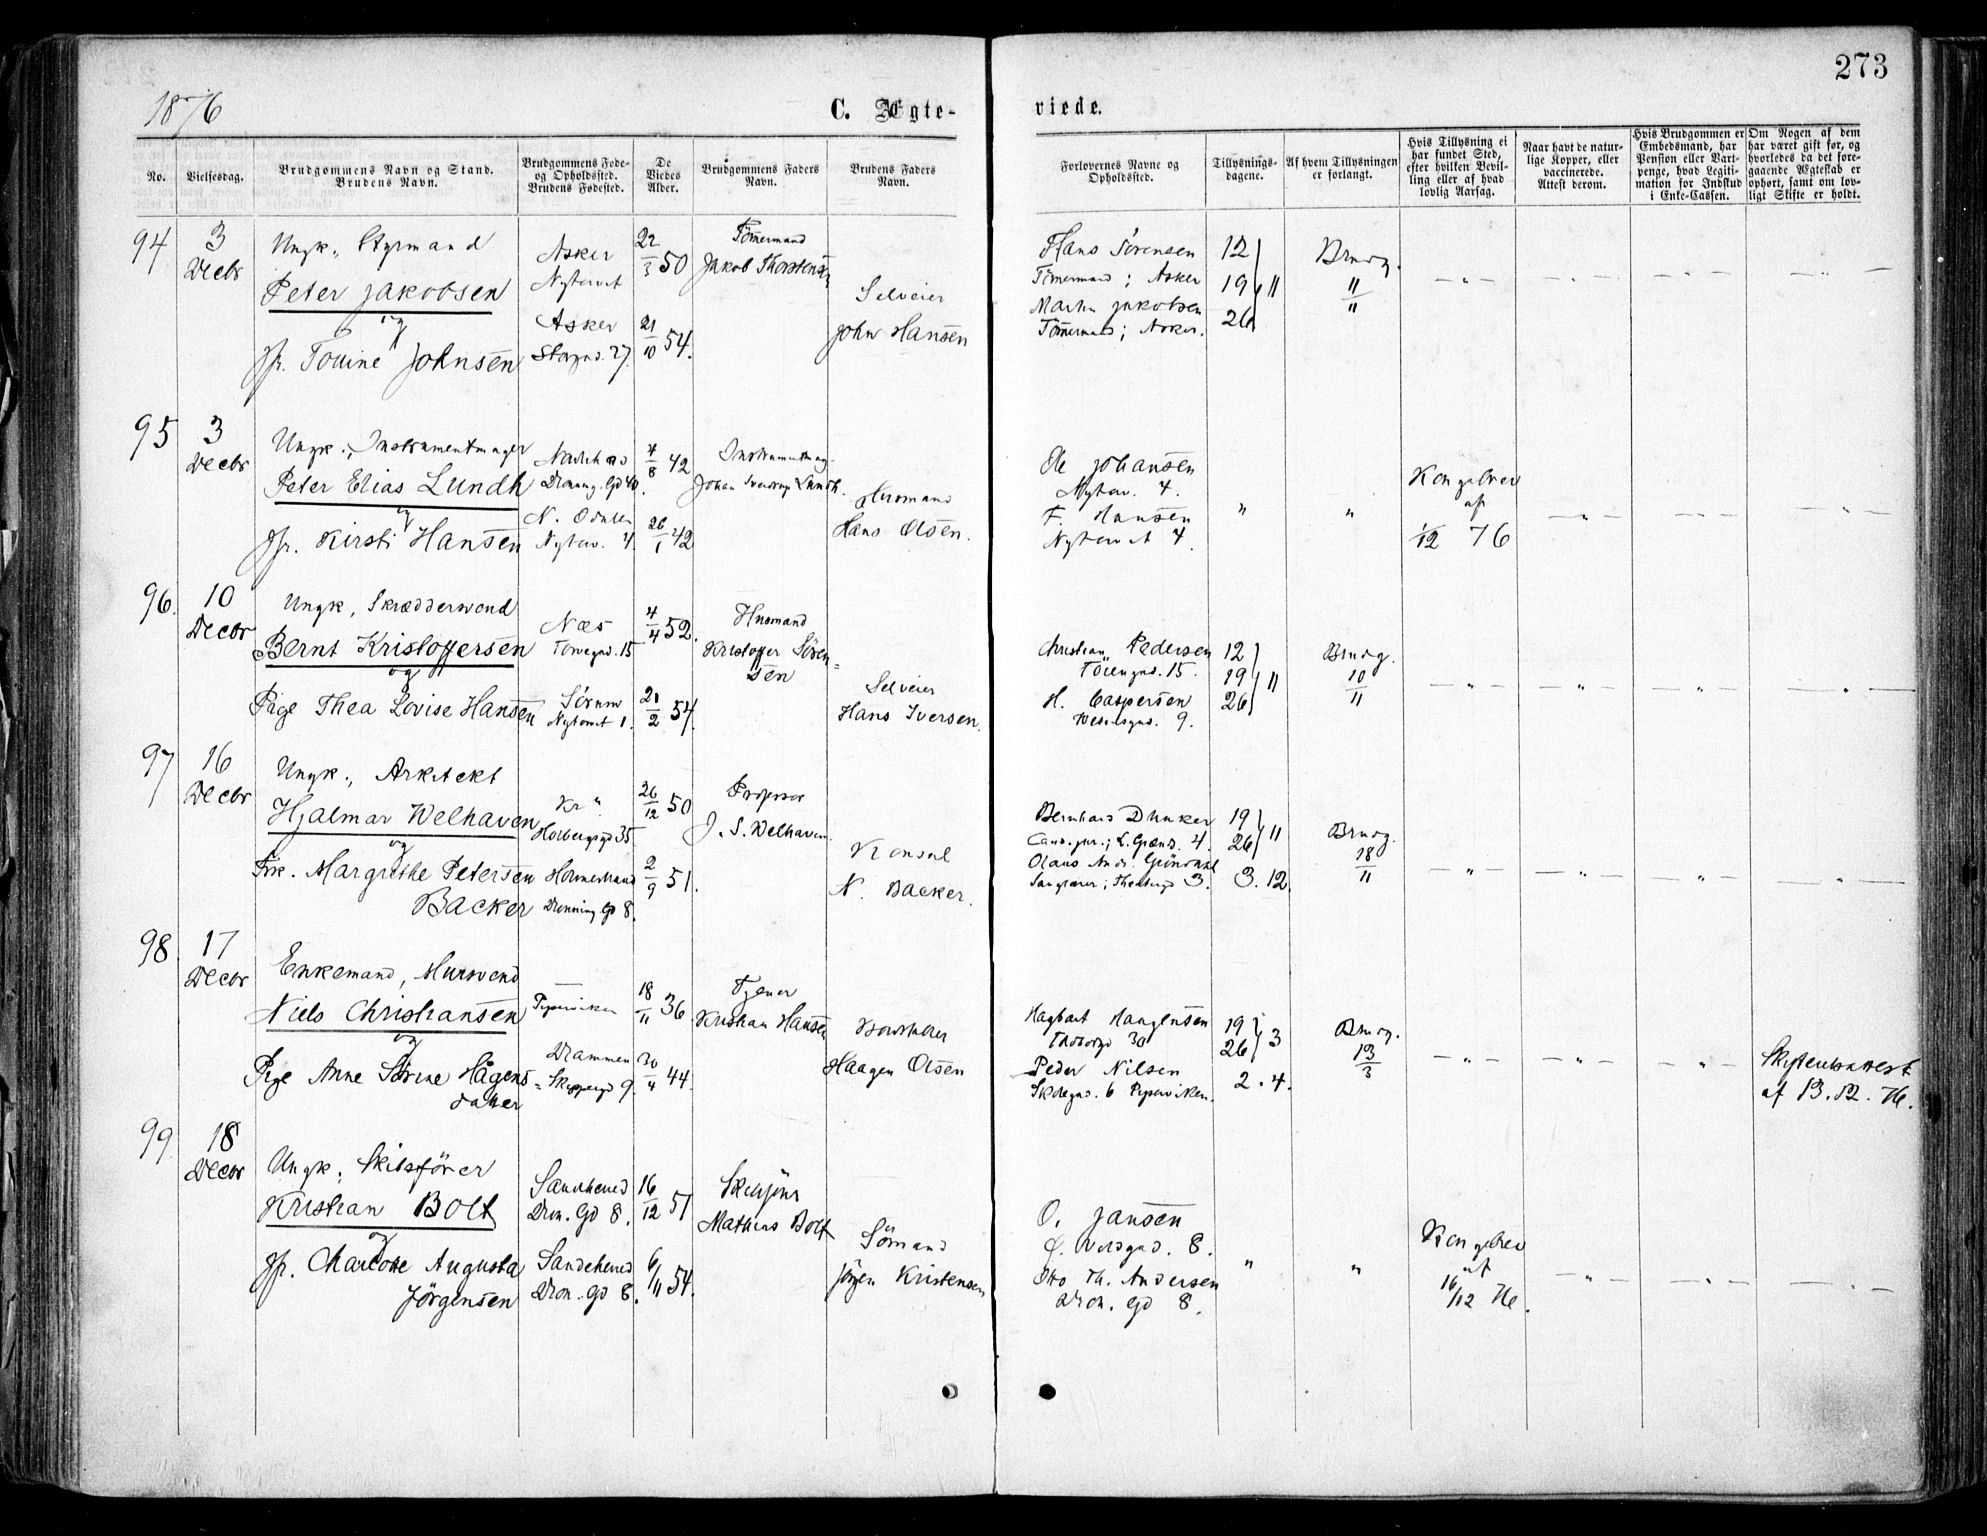 273
1876
C. Ægte-
viede.
No.
Vielsesdag.
Brudgommens Navn og Stand.
Brudens Navn.
Brudgommens Føde-
og Opholdssted.
Brudens Fødested.
De
Viedes
Alder.
Brudgommens Faders
Navn.
Brudens Faders
Navn.
Forlovernes Navne og
Opholdssted.
Tillysnings-
dagene.
Af hvem Tillysningen
er forlangt.
Hvis Tillysning ei
har fundet Sted,
efter hvilken Bevil-
ling eller af hvad
lovlig Aarsag.
Naar havt de natur-
lige Kopper, eller
vaccinerede.
Attest derom.
Hvis Brudgommen er
Embedsmand, har
Pension eller Vart-
penge, hvad Legiti-
mation for Indskud
i Enke-Cassen.
Om Nogen af dem
har været gift før, og
hvorledes da det fore-
gaaende Ægteskab er
ophørt, samt om lov-
ligt Skifte er holdt.
94
3
Decbr
Ungk., Styrmand
Peter Jakobsen
og
Jfr. Tovine Johnsen
Asker
Nytorvet
Asker
Storgd. 27.
22/3 50
21/10 54.
Tömmermand
Jakob Thorstensen
Selveier
John Hansen
Hans Sörensen
Tömmermand; Asker
Martin Jakobsen
Tömmermand; Asker.
12
19 11
26
Brudg.
11/11
95
3
Decbr
Ungk., Instrumentmager
Peter Elias Lundh
og
Jfr. Kirsti Hansen
Dronng. Gd 40.
N. Odalen
Nytorv. 4.
4/8 42
26/1 42
Instrumentmag.
Johan Sverdrup Lundh.
Husmand
Hans Olsen.
Ole Johansen
Nytorv. 4.
F. Hansen
Nytorvet 4.
"
"
Kongebrev
af
1/12 76
96.
10
Decbr
Ungk, Skrædersvend
Bernt Kristoffersen
og
Pige Thea Lovise Hansen
Næs
Torvegd. 15
Sörum
Nytorvet 1.
4/4 52.
21/2 54.
Husmand
Kristoffer Sören-
sen
Selveier
Hans Iversen.
Christian Pedersen
Torvegd. 15.
H. Caspersen
Wesselsgd. 9.
12
19 11
26
Brudg.
10/11
97
16
Decbr
Ungk., Arkitekt
Hjalmar Welhaven
og
Frk. Margrethe Petersen
Backer
Kr"
Holbergsgd 35
Holmestrand
Dronning Gd 8.
26/12 50
2/9 51.
Professor
J. S. Welhaven
Konsul
N. Backer.
Bernhard Dunker
Cand. jur.; L. Grænd. 4.
Olaus Andr. Gröndahl
Sanglærer; Theatergd 3.
19
26 11
3. 12.
Brudg.
18/11
98
17
Decbr
Enkemand, Mursvend
Niels Christiansen
og
Pige Anne Sörine Hagens
datter
Piperviken
Drammen
Skippergd 9.
18/11 36
30/4 44.
Tjener
Kristian Hansen
Haagen Olsen
Hagbart Haagensen
30
Peder Nilsen
6 Piperviken.
19
26 3
2. 4.
Brudg.
13/3
af 13. 12. 76.
99.
18
Decbr
Ungk., Skibsförer
Kristian Bolt
og
Jfr. Charlotte Augusta
Jörgensen
Sandehered
Dron. Gd 8.
Sandehered
Dron. Gd 8.
16/12 51
6/11 54.
Mathias Bolt
Sömand
Jörgen Kristensen
O. Jansen
8.
Otto Th. Andersen
Dron. Gd 8.
"
"
Kongebrev
af
16/12 76.